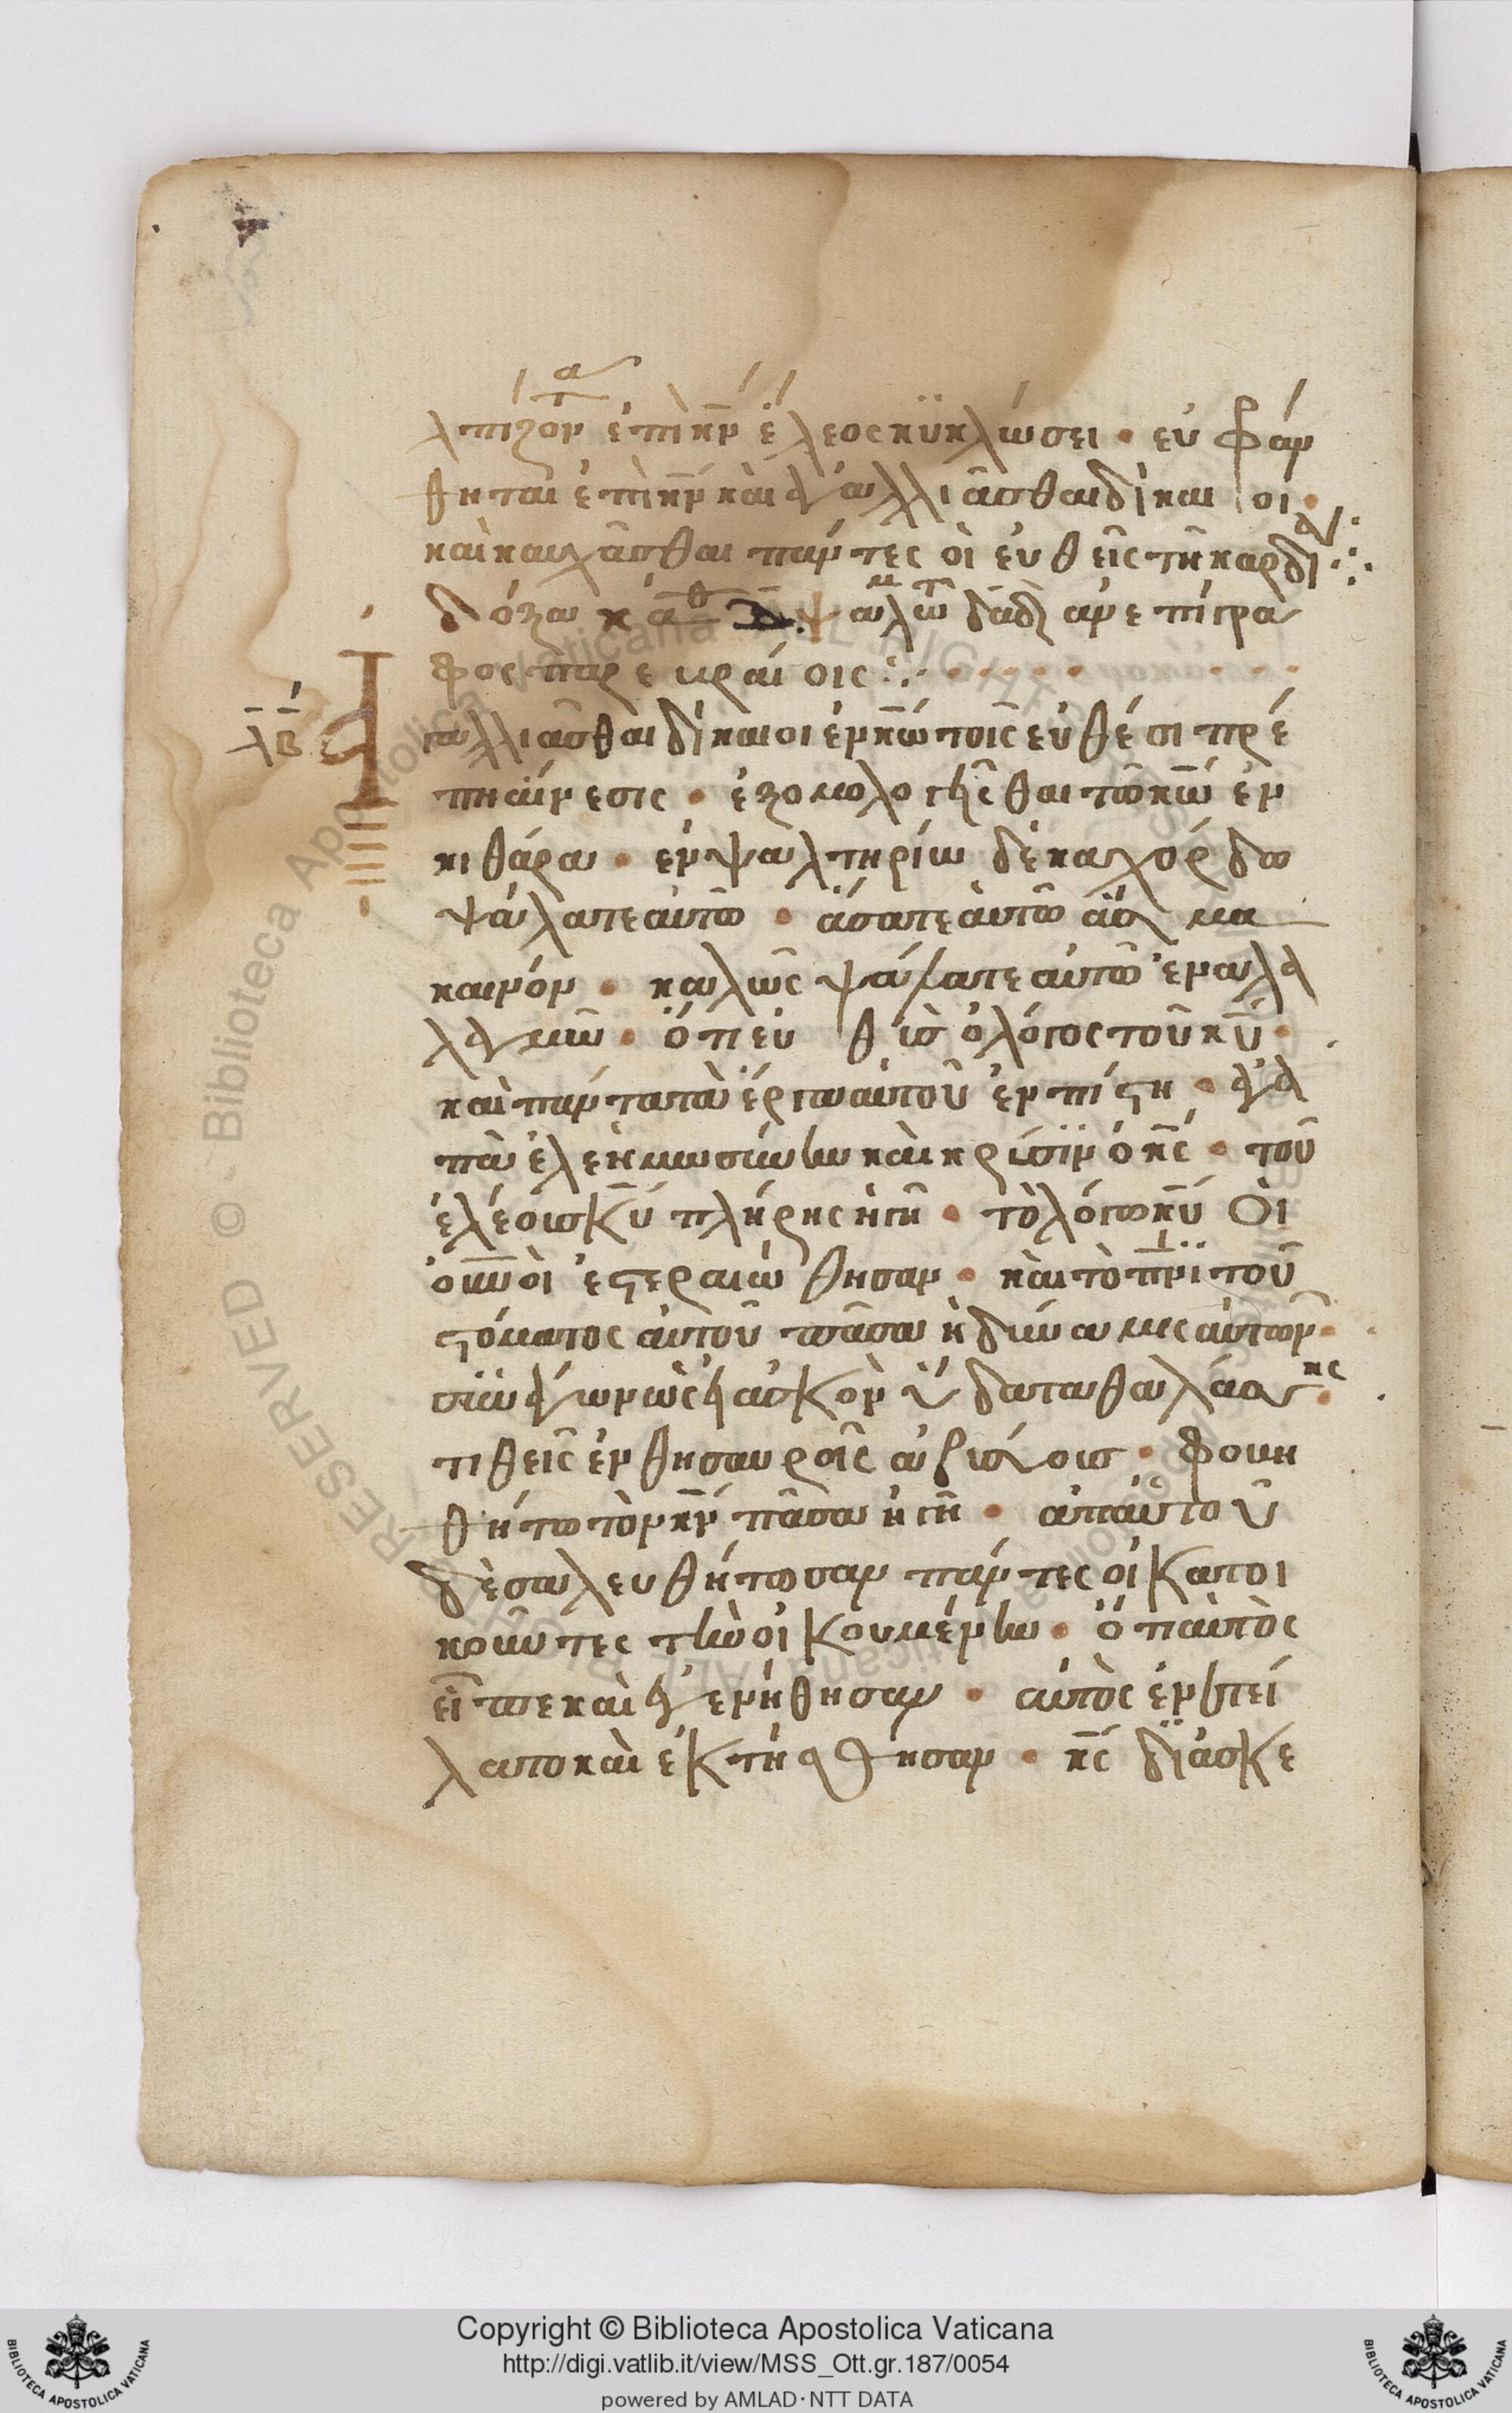 λπιζοντα ἐπὶ κ̅ν̅ ἔλεος κϋκλώσει · εὐφράν
θηται ἐπὶ κ̅ν̅ καὶ ἀγαλλιᾶσθαι δίκαιοι ·
καὶ καυχᾶσθαι πάντες οἱ εὐθεῖς τῆ καρδί
δόξα κάθ ψαλμ τῶ δᾱδ ἀνεπίγρα
φος παρ εβραίοις :·
λ̅β̅ Ἀγαλλιᾶσθαι δίκαιοι ἐν κ̅ω̅ τοῖς εὐθέσι πρέ
πη αἴνεσις · ἐξομολογῆσθαι τῶ κ̅ω̅ ἐν
κιθάρα · ἐν ψαλτηρίω δεκαχόρδω
ψάλατε αὐτῶ · ἄσατε αὐτῶ ἄσμα
καινόν · καλῶς ψάλατε αὐτῶ ἐν αλα
λαγμῶ · ὅτι εὐθὶσ ὁ λόγος τοῦ κ̅υ̅ ·
καὶ πάντα τὰ ἔργα αὐτοῦ ἐν πίστη · ἀγα
πὰ ἐλεημωσύνην καὶ κρίσϊν ὁ κ̅ς̅ · τοῦ
ἐλέουσ κ̅υ̅ πλήρης ἡ γῆ · τὸ λόγω κ̅υ̅ Οἱ
ο̅υ̅ν̅οὶ ἐστεραιώθησαν · καὶ τὸ π̅ν̅ι τοῦ
στόματος αὐτοῦ πᾶσα ἡ δύναμις αὐτων ·
συνάγων ὡς ἀσκὸν ὕδατα θαλάσσης ·
τιθεὶς ἐν θησαυροῖς ἀβύσσοισ · φοβη
θήτω τὸν κ̅ν̅ πᾶσα ἡ γῆ · ἀπαὐτοῦ
δὲ σαλευθήτωσαν πάντες οἱ κατοι
κοῦντες τὴν οἰκουμένην · ὅτι αὐτὸς
εἶπε καὶ ἐγενήθησαν · αὐτὸς ἐνετεί
λατο καὶ ἐκτήσθησαν · κ̅ς̅ διασκε
Copyright © Biblioteca Apostolica Vaticana
http://digi.vatlib.it/view/MSS_Ott.gr.187/0054
powered by AMLAD·NTT DATA